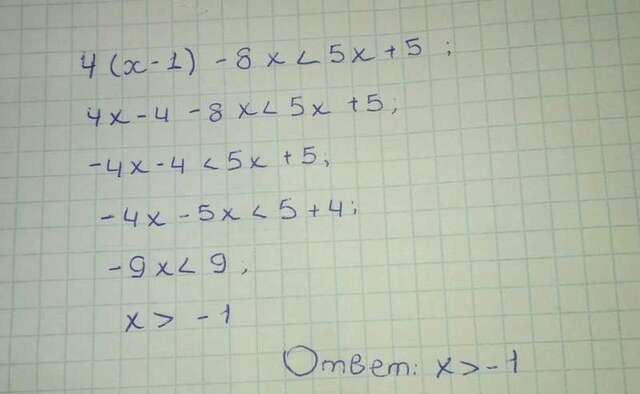 4(x-1) - 8x < 5x + 5;
4x - 4 - 8x < 5x + 5;
-4x - 4 < 5x + 5;
-4x - 5x < 5 + 4;
-9x < 9;
x > -1
Ответ: x > -1